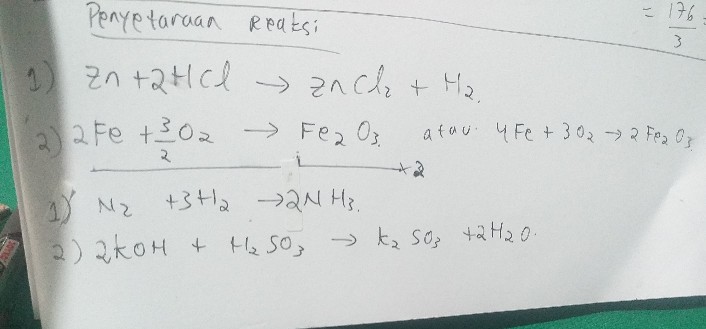 = 176/3
Penyetaraan Reaksi
1) Zn + 2HCl → ZnCl₂ + H₂.
2) 2Fe + 3/2 O₂ → Fe₂O₃. atau 4Fe + 3O₂ → 2Fe₂O₃.
×2
1) N₂ + 3H₂ → 2NH₃.
2) 2KOH + H₂SO₃ → K₂SO₃ + 2H₂O.